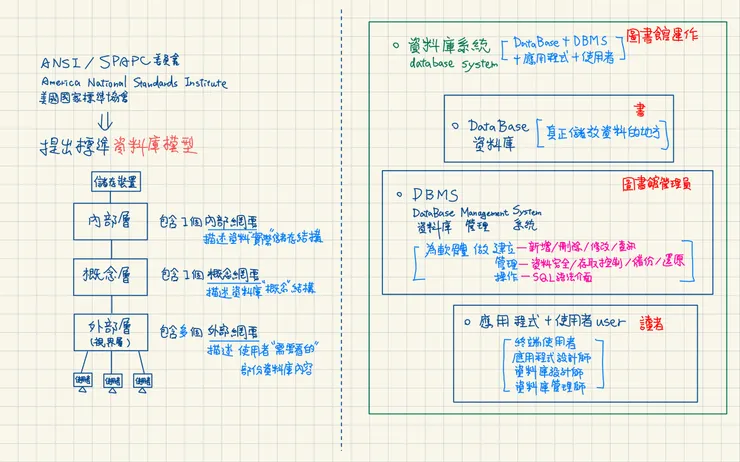 ANSI/SPAPC委員會
America National Standards Institute
美國國家標準協會
提出標準資料庫模型
儲存裝置
內部層
包含1個內部綱要
描述資料"實際"儲存結構
概念層
包含1個概念綱要
描述資料庫"概念"結構
外部層
(視界層)
包含多個外部綱要
描述 使用者"需要看的"
部份資料庫內容
使用者
使用者
使用者
資料庫系統
database system
DataBase+DBMS
+應用程式+使用者
圖書館運作
書
DataBase
資料庫
真正儲放資料的地方
圖書館管理員
DBMS
DataBase Management System
資料庫 管理 系統
為軟體 做 建立—新增/刪除/修改/查詢
管理—資料安全/存取控制/備份/還原
操作—SQL語法介面
應用程式+使用者user
讀者
終端使用者
應用程式設計師
資料庫設計師
資料庫管理師